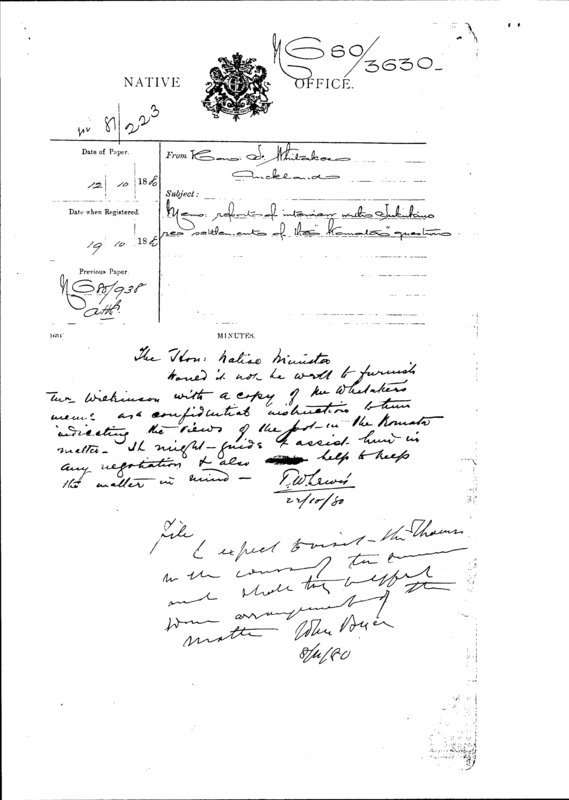 NG 80/3630
NATIVE OFFICE.
81/223
Date of Paper.
12 10 1880
From Hon. F. Whitaker
Auckland
Subject:
Memo. reports of interview with
re settlement of the "Komata" question
Date when Registered.
19 10 1880
Previous Paper.
NG 80/938
MINUTES.
The Hon: Native Minister
Would it not be well to furnish
Mr Wilkinson with a copy of Mr Whitaker's
memo as a confidential instruction to him
indicating the views of the Govt in the Komata
matter. It might guide & assist him in
any negotiation & also help to keep
the matter in mind —
T.W. Lewis
22/10/80
File
I expect to visit the Thames
in the course of the
and shall try to effect
some arrangement of the
matter John Bryce
8/11/80